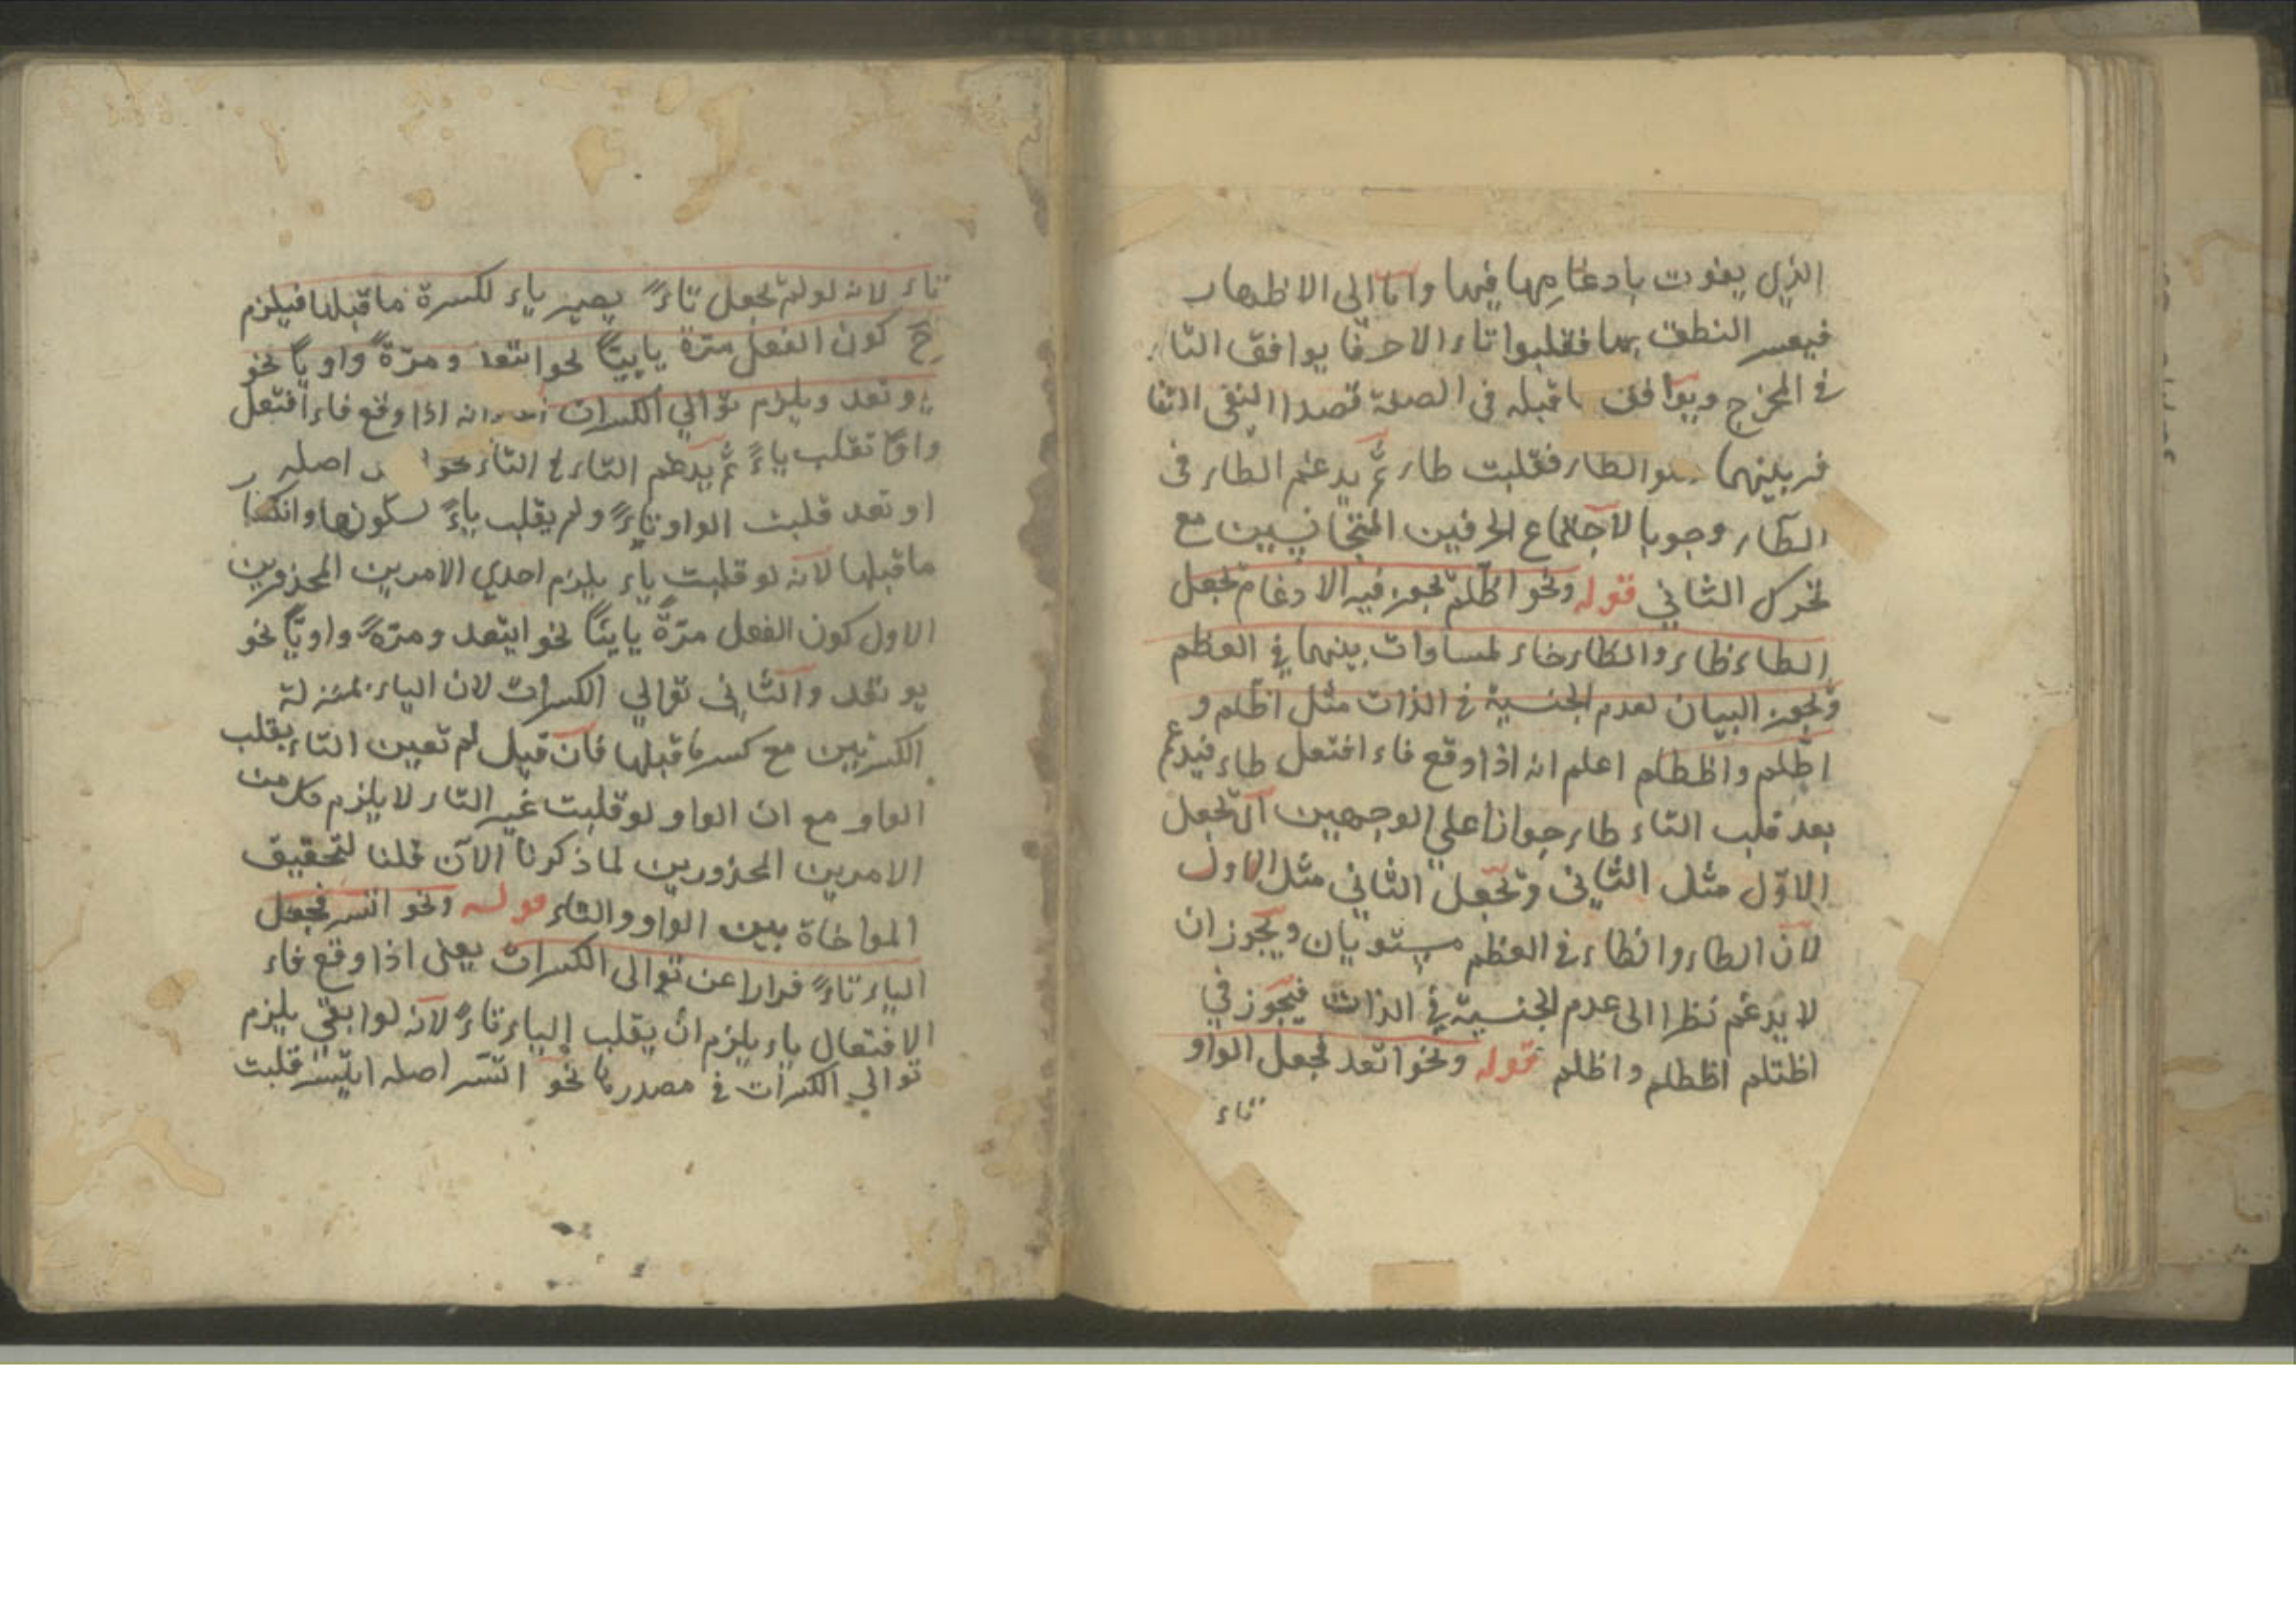 الذي يفوت بادغامها فيها واما الى الاظهار
فيعسر النطق بهما فقلبوا تاء الاحرفا يوافق التاء
في المخرج ويوافق ما قبله في الصفة قصدا النفى التنا
فر بينهما والطاء فقلبت طاء ثم يدغم الطاء فى
الطاء وجوبا لاجتماع الحرفين المتجانسين مع
تحرك الثاني قوله ونحو اظلم يجوز فيه الادغام بجعل
الطاء ظاء والظاء طاء لمساوات بينهما في العظم
ويجوز البيان لعدم الجنسية في الذات مثل اظلم و
اطلم واظطلم اعلم انه اذا وقع فاء افتعل ظاء فيدغم
بعد قلب التاء طاء جوازا علي الوجهين اى بجعل
الاول مثل الثاني وبجعل الثاني مثل الاول
لان الطاء والظاء في العظم مستويان ويجوز ان
لا يدغم نظرا الى عدم الجنسية في الذات فيجوز في
اظتلم اظطلم واظلم قوله ونحو اتعد بجعل الواو
تاء
تاء لانه لو لم تجعل تاءً يصير ياء لكسرة ما قبلها فيلزم
ح كون الفعل مرة يائيا نحو ايتعد ومرّةً واويا نحو
يوتعد ويلزم توالي الكسرات انه اذا وقع فاء افتعل
واوًا تقلب ياءً ثم يدغم التاء في التاء نحو اصله
اوتعد قلبت الواو تاءً ولم يقلب ياءً لسكونها وانكسار
ما قبلها لانه لو قلبت ياء يلزم احدي الامرين المحذورين
الاول كون الفعل مرّةً يائيًا نحو ايتعد ومرّةً واويًا نحو
يوتعد والثاني توالي الكسرات لان الياء بمنزلة
الكسرتين مع كسر ما قبلها فان قيل لم تعين التاء بقلب
الواو مع ان الواو لو قلبت غير التاء لا يلزم كل من
الامرين المحذورين لما ذكرنا الآن قلنا لتحقيق
المواخاة بين الواو والتاء قوله ونحو اتسر بجعل
الياء تاءً فرارا عن توالى الكسرات يعنى اذا وقع فاء
الافتعال ياء يلزم ان يقلب الياء تاءً لانه لو ابقي يلزم
توالي الكسرات في مصدرها نحو اتسر اصله ايتسر قلبت